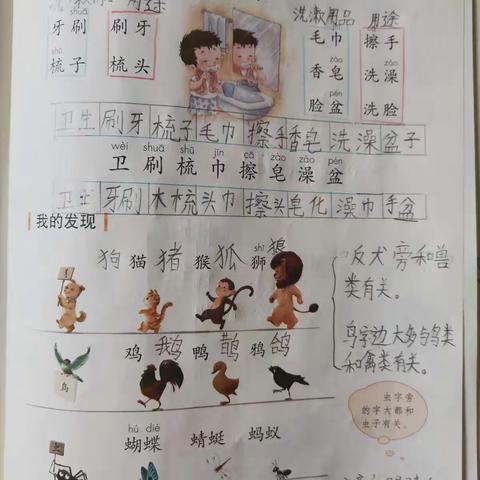 洗漱用品 用途
shuā
牙刷 刷牙
shū
梳子 梳头
洗漱用品 用途
毛巾 擦手
zào zǎo
香皂 洗澡
pén
脸盆 洗脸
卫生 刷牙 梳子 毛巾 擦手 香皂 洗澡 盆子
wèi shuā shū jīn cā zào zǎo pén
卫 刷 梳 巾 擦 皂 澡 盆
卫士 牙刷 木梳 头巾 擦头 皂化 澡巾 手盆
我的发现
shī
狗 猫 猪 猴 狐 狮 狼
反犬旁和兽
类有关。
鸡 鹅 鸭 鹊 鸦 鸽
鸟
鸟字边大多与鸟类
和禽类有关。
虫字旁
的字大都和
虫子有关。
hú dié
蝴蝶 蜻蜓 蚂蚁